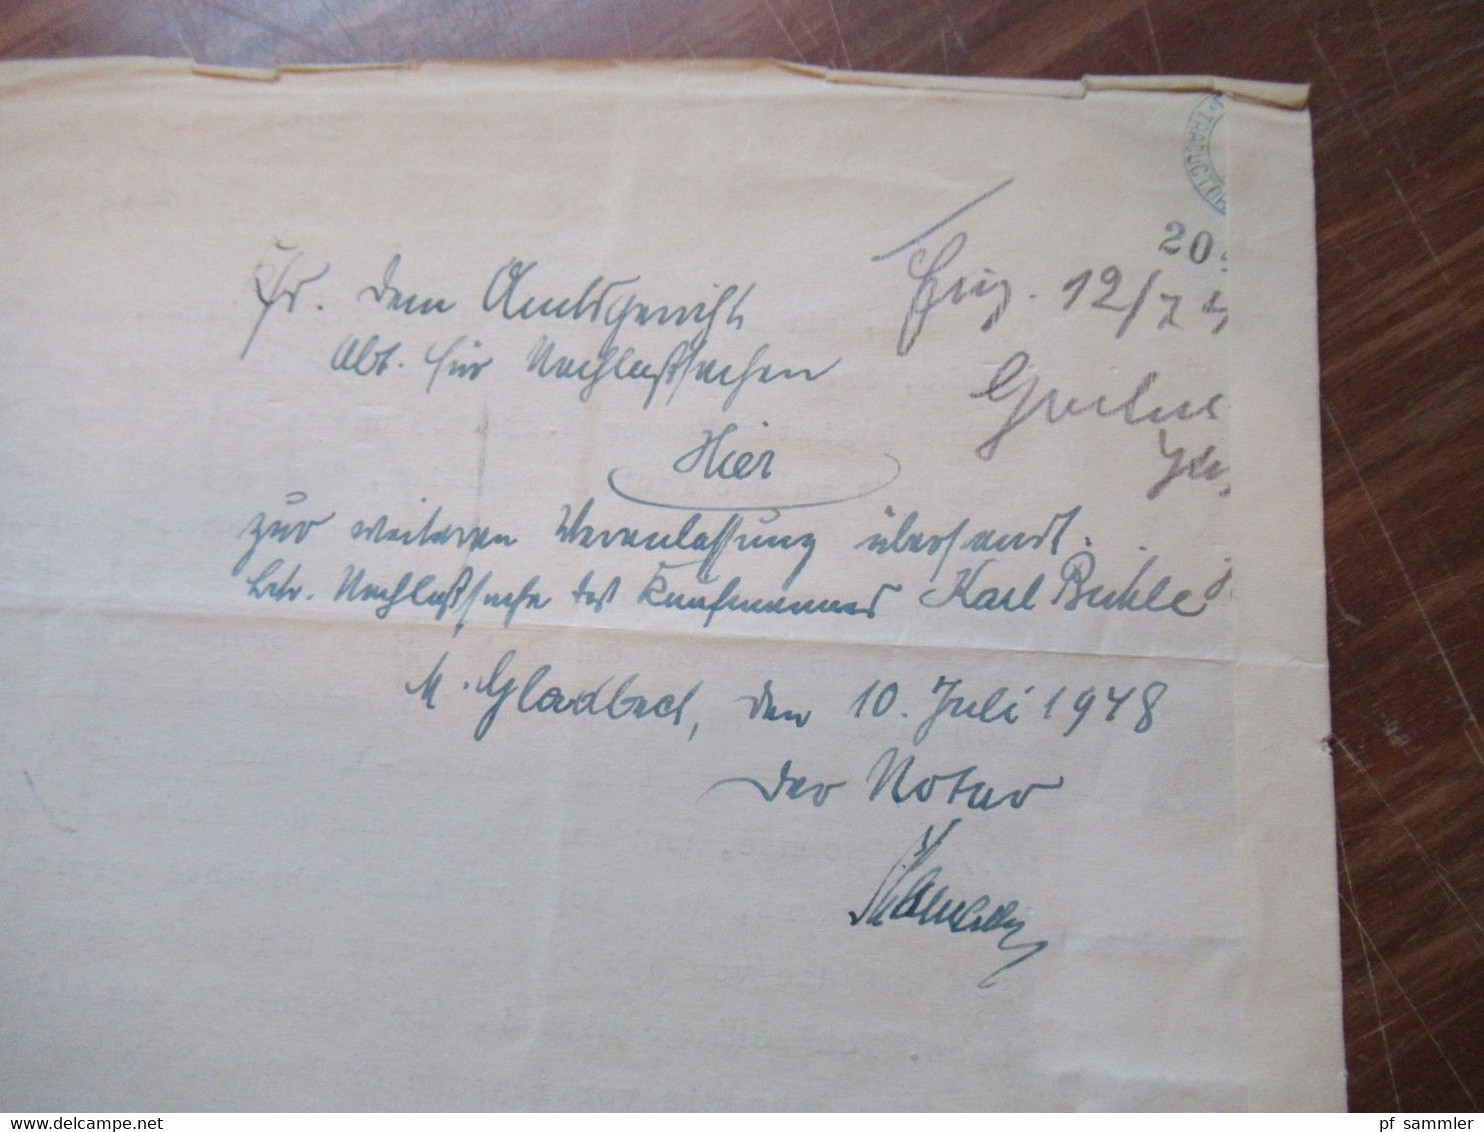 TRADUCTOR
20
12/7
dem Amtsgericht
Abt. für Nachlaßsachen
Hier
zur weiteren Veranlassung übersandt.
betr. Nachlaßsache des Kaufmannes Karl Buhle
M. Gladbach, den 10. Juli 1948
Der Notar
delcampe.net
pf_sammler